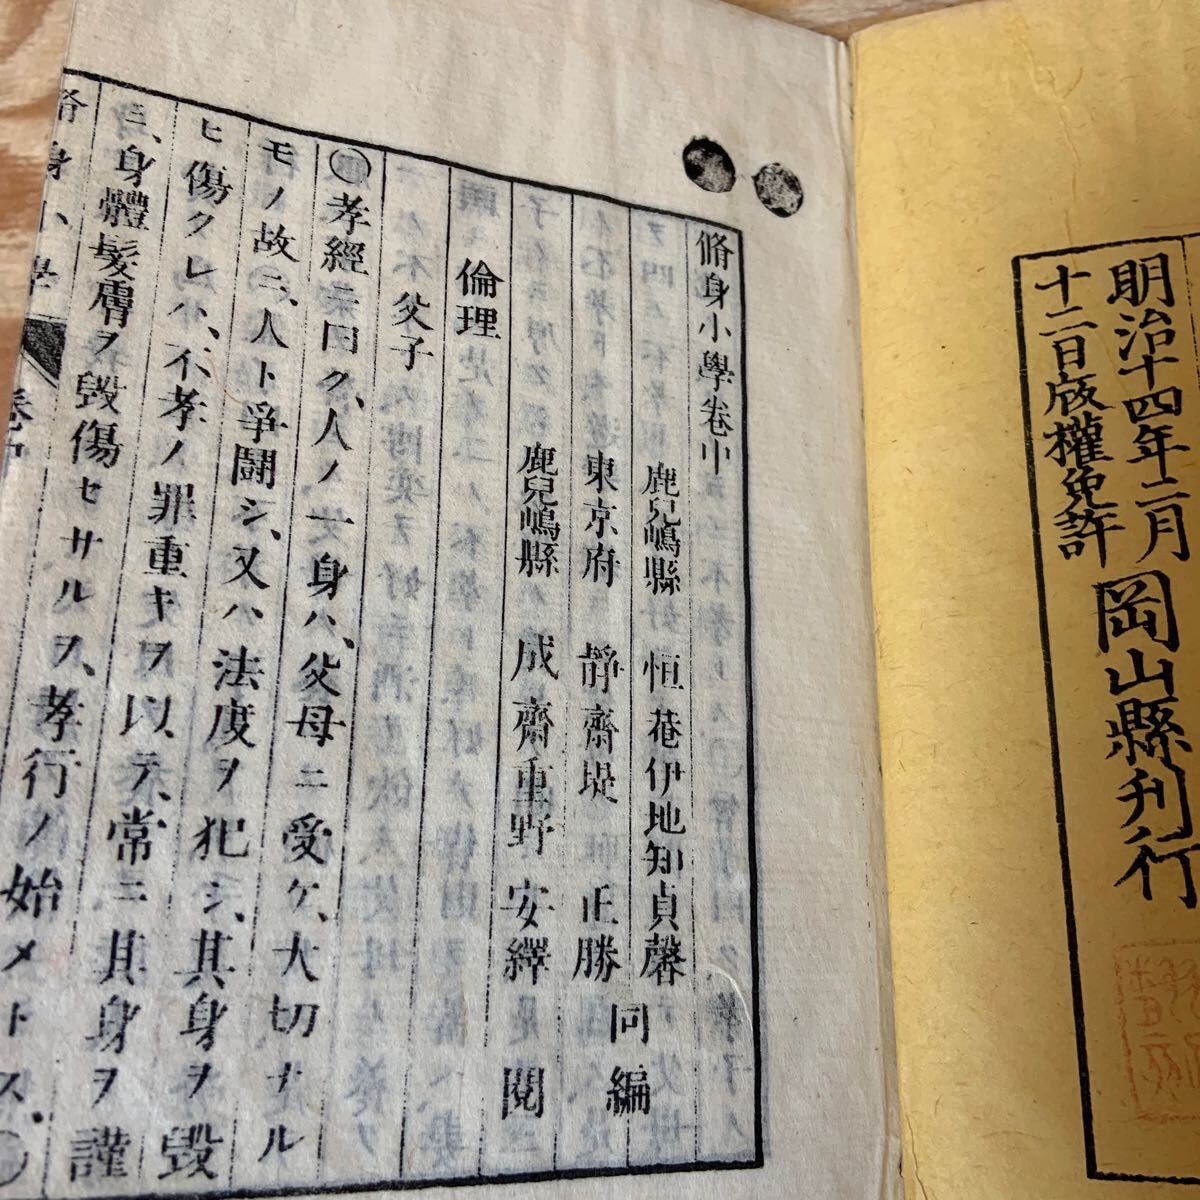 明治十四年二月
十二日版權免許
岡山縣刋行
脩身小學卷中
鹿兒嶋縣 恒菴伊地知貞馨
東京府 靜齋堤 正勝
同編
鹿兒嶋縣 成齋重野 安繹 閲
倫理
父子
○孝經ニ曰ク、人ノ一身ハ、父母ニ受ケ、大切ナル
モノ故ニ、人ト爭鬪シ、又ハ法度ヲ犯シ、其身ヲ毀
ヒ傷クレハ、不孝ノ罪重キヲ以、テ、常ニ其身ヲ謹
ミ、身體髮膚ヲ毀傷セサルヲ、孝行ノ始メトス、○
脩身小學
卷中